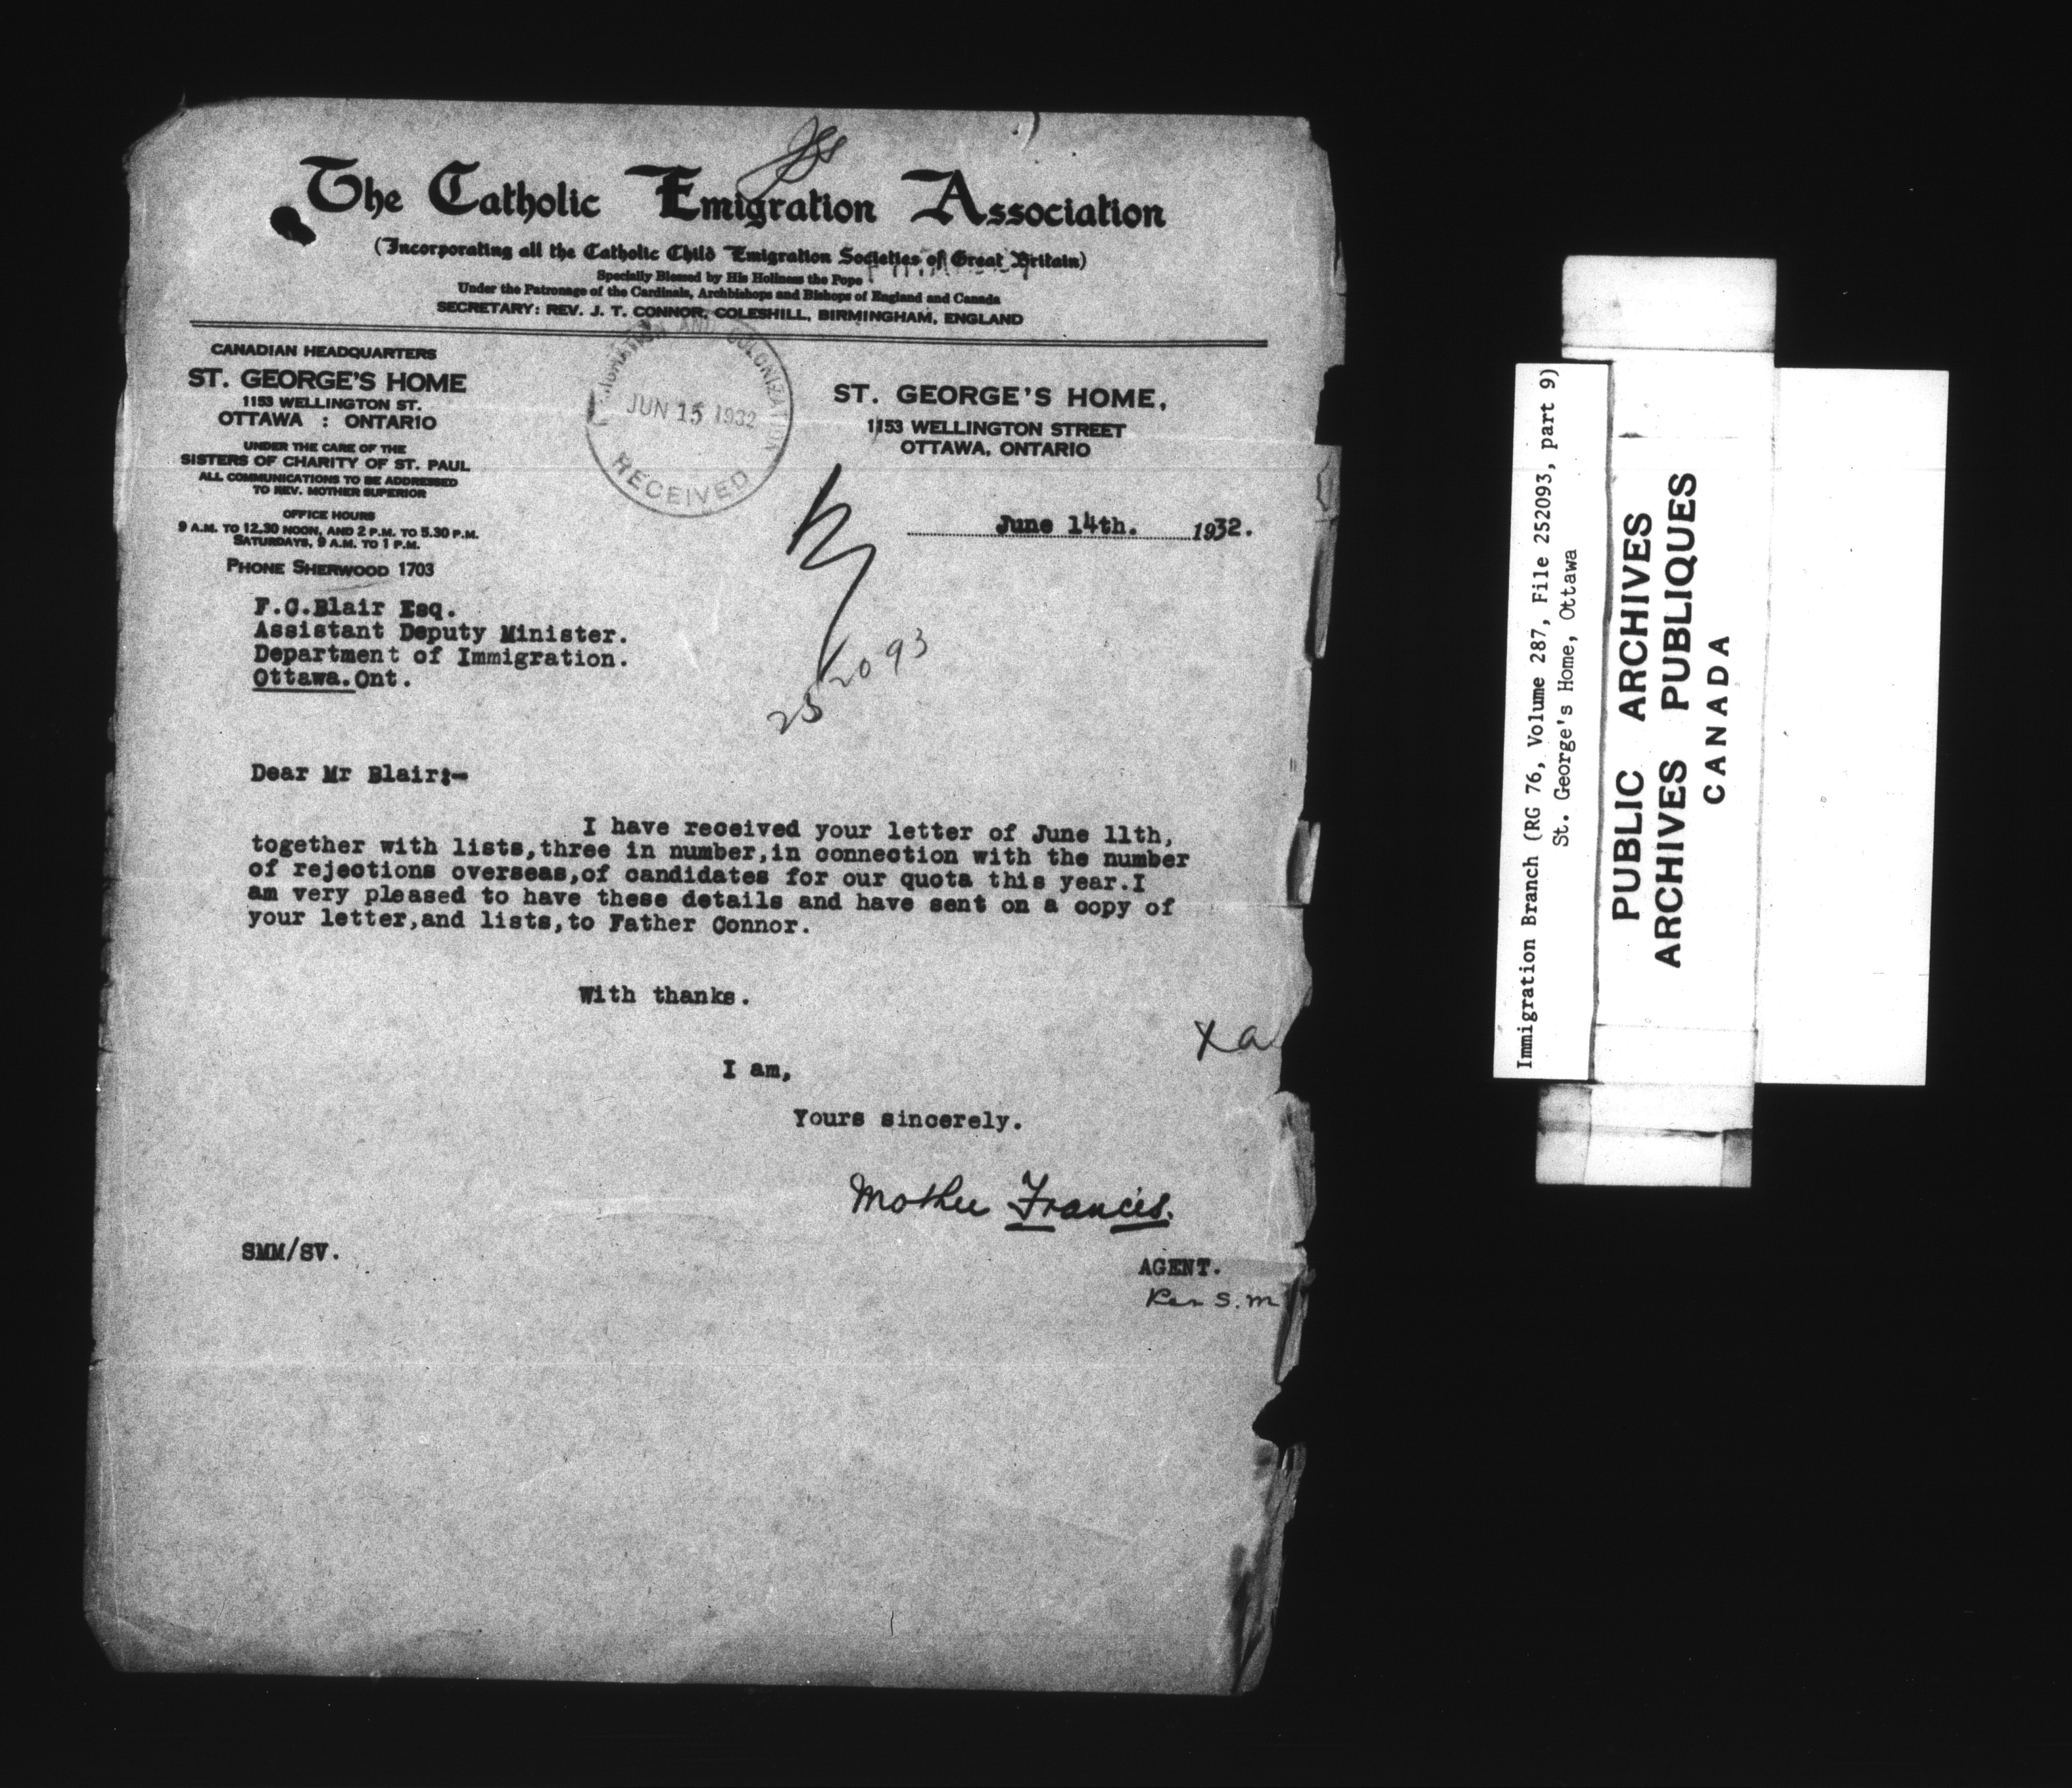 The Catholic Emigration Association
(Incorporating all the Catholic Child Emigration Societies of Great Britain)
Specially Blessed by His Holiness the Pope
Under the Patronage of the Cardinals, Archbishops and Bishops of England and Canada
SECRETARY: REV. J. T. CONNOR, COLESHILL, BIRMINGHAM, ENGLAND
CANADIAN HEADQUARTERS
ST. GEORGE'S HOME
1153 WELLINGTON ST.
OTTAWA : ONTARIO
UNDER THE CARE OF THE
SISTERS OF CHARITY OF ST. PAUL
ALL COMMUNICATIONS TO BE ADDRESSED
TO REV. MOTHER SUPERIOR
OFFICE HOURS
9 A.M. TO 12.30 NOON, AND 2 P.M. TO 5.30 P.M.
SATURDAYS, 9 A.M. TO 1 P.M.
PHONE SHERWOOD 1703
AND COLONIZATION
JUN 15 1932
RECEIVED
ST. GEORGE'S HOME,
1153 WELLINGTON STREET
OTTAWA, ONTARIO
June 14th. 1932.
F.C.Blair Esq.
Assistant Deputy Minister.
Department of Immigration.
Ottawa.Ont.
252093
Dear Mr Blair:-
I have received your letter of June 11th,
together with lists,three in number,in connection with the number
of rejections overseas,of candidates for our quota this year.I
am very pleased to have these details and have sent on a copy of
your letter,and lists,to Father Connor.
With thanks.
Xa
I am,
Yours sincerely.
Mother Francis.
SMM/SV.
AGENT.
Per S.M
Immigration Branch (RG 76, Volume 287, File 252093, part 9)
St. George's Home, Ottawa
PUBLIC ARCHIVES
ARCHIVES PUBLIQUES
CANADA